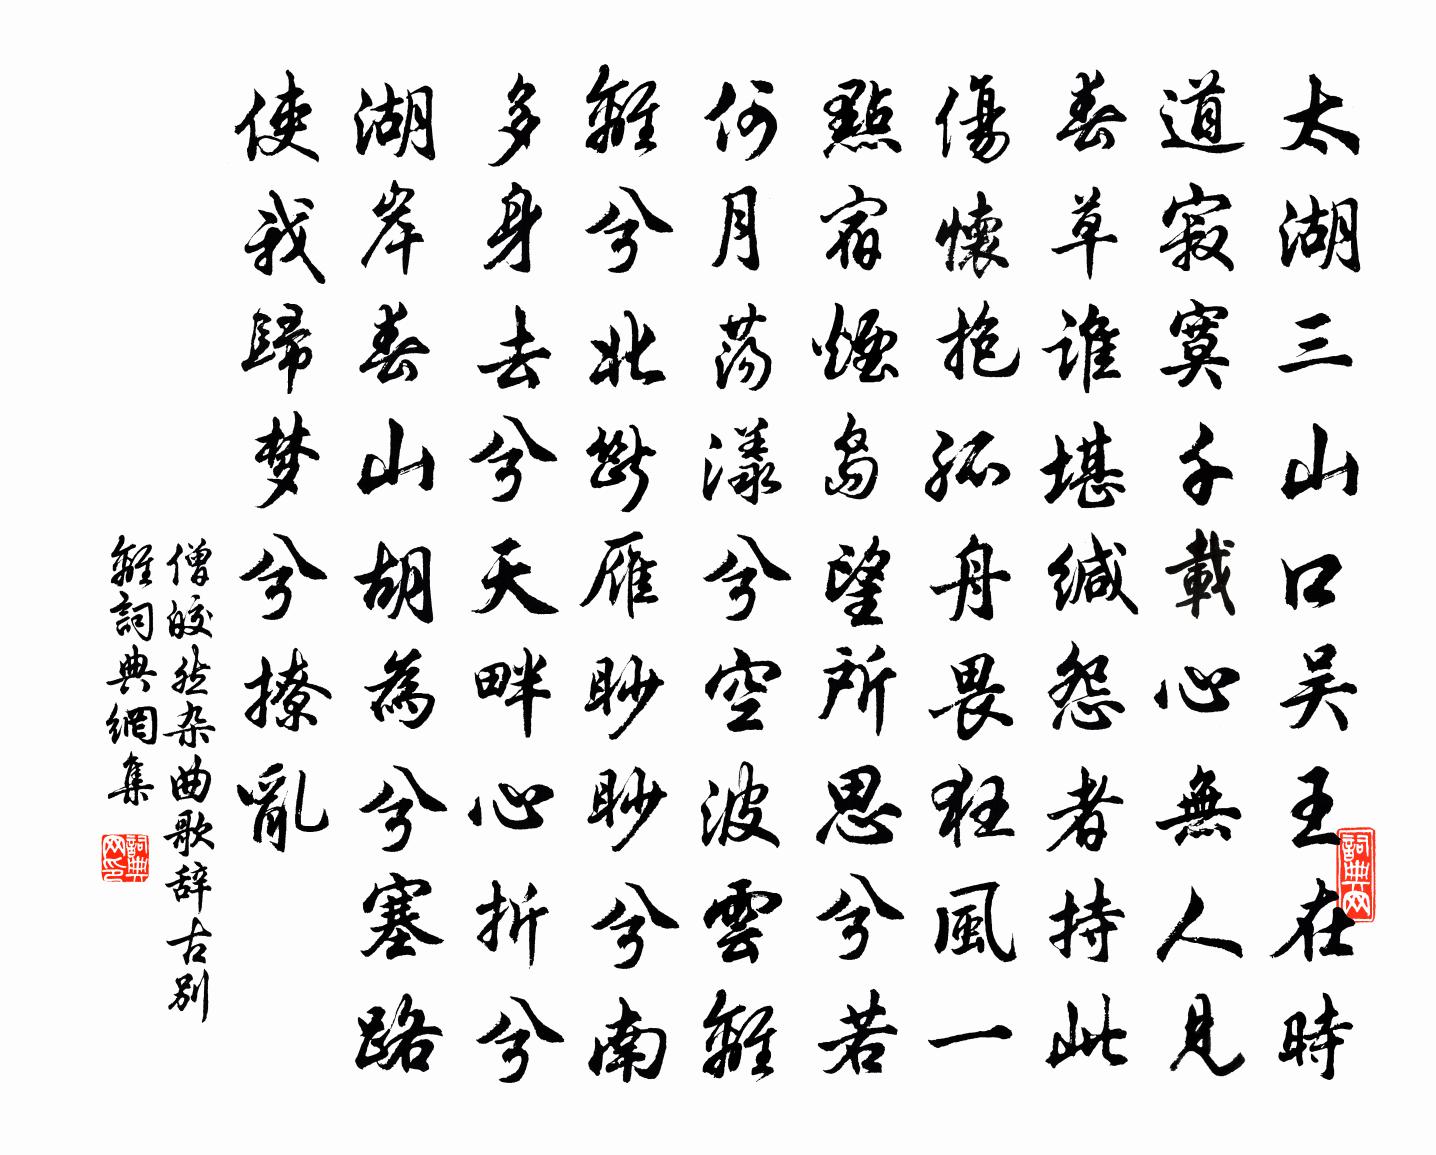 太湖三山口吴王在時
道寂寞千載心無人見
春草誰堪緘怨者持此
傷懷抱孤舟畏狂風一
點宿煙島望所思兮若
何月蕩漾兮空波雲離
離兮北斷雁眇眇兮南
多身去兮天畔心折兮
湖岸春山胡為兮塞路
使我歸梦兮撩亂
僧皎然杂曲歌辞古别
離詞典網集
詞典网
詞典网印